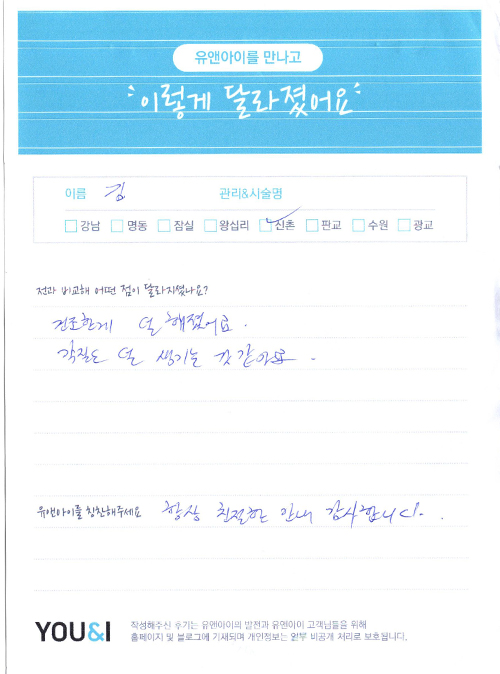 유앤아이를 만나고
이렇게 달라졌어요
이름 김 관리&시술명
강남 명동 잠실 왕십리 신촌 판교 수원 광교
전과 비교해 어떤 점이 달라지셨나요?
건조한게 덜 해졌어요.
각질도 덜 생기는 것 같아요.
유앤아이를 칭찬해주세요 항상 친절한 안내 감사합니다.
YOU&I 작성해주신 후기는 유앤아이의 발전과 유앤아이 고객님들을 위해
홈페이지 및 블로그에 기재되며 개인정보는 일부 비공개 처리로 보호됩니다.